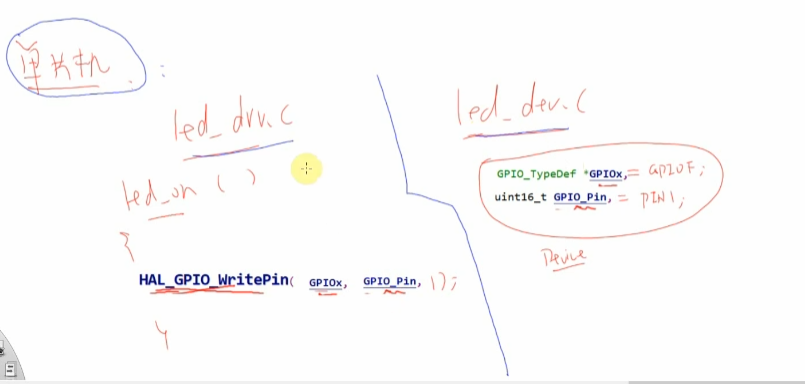 单片机:
led_drv.c
led_on ( )
{
HAL_GPIO_WritePin( GPIOx, GPIO_Pin, 1);
}
led_dev.c
GPIO_TypeDef *GPIOx, = GPIOF;
uint16_t GPIO_Pin, = PIN1;
Device